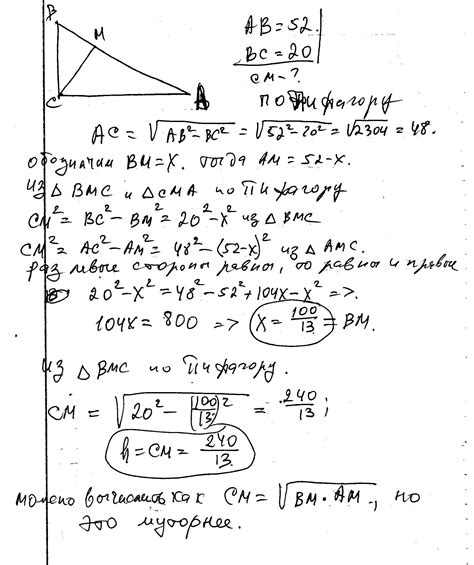 B
M
C
A
AB = 52
BC = 20
CM - ?
по Пифагору
AC = √(AB² - BC²) = √(52² - 20²) = √2304 = 48.
обозначим BM = X. тогда AM = 52 - x.
из △ BMC и △ CMA по Пифагору
CM² = BC² - BM² = 20² - x² из △ BMC
CM² = AC² - AM² = 48² - (52 - x)² из △ AMC.
раз левые стороны равны, то равны и правые
20² - x² = 48² - 52² + 104x - x² =>.
104x = 800 => x = 100/13 = BM.
из △ BMC по Пифагору.
CM = √(20² - (100/13)²) = 240/13;
h = CM = 240/13
можно вычислить как CM = √(BM · AM), но
это муторнее.